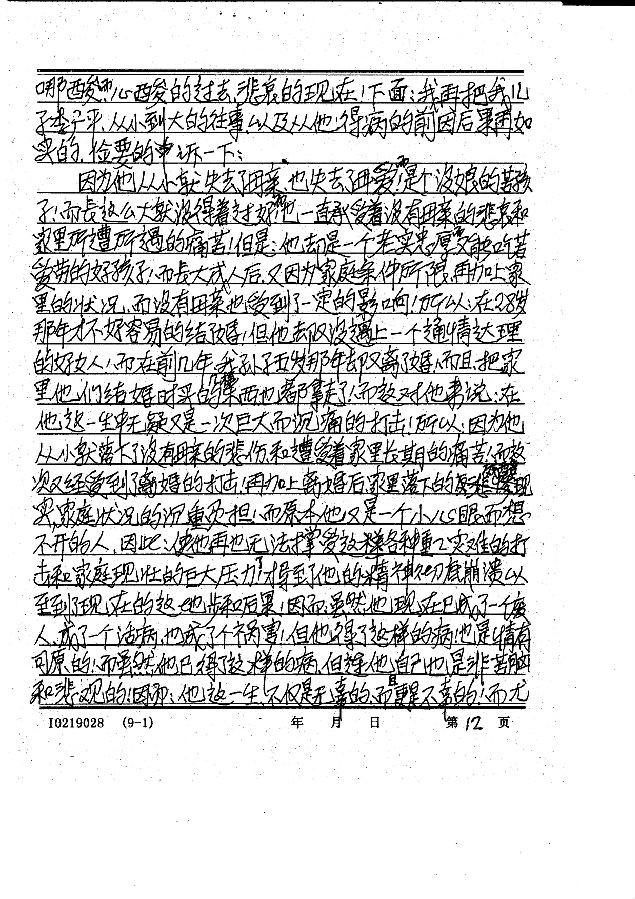 哪酸心酸的过去、悲哀的现在！下面：我再把我儿
子李子平、从小到大的往事以及从他得病的前因后果再如
实的、检要的申诉一下：
因为他从小就失去了母亲、也失去了母爱！是个没娘的苦孩
子！而长这么大就没得着过好！他一直承受着没有母亲的悲哀和
家里所遭所遇的痛苦！但是：他却是一个老实忠厚又能吃苦
爱劳的好孩子！而长大成人后、又因为家庭条件所限、再加上家
里的状况、而没有母亲也受到了一定的影响！所以：在28岁
那年才不好容易的结成婚！但他却又没遇上一个通情达理
的好女人！而在前几年、我孙子五岁那年却又离了婚！而且、把家
里他们结婚时买的东西也都拿走了！而这对他来说：在
他这一生中无疑又是一次巨大而沉痛的打击！所以、因为他
从小就落下了没有母亲的悲伤和遭受着家里长期的痛苦！而这
次又经受到了离婚的打击！再加上离婚后家里落下的现
实、家庭状况的沉重负担！而原本他又是一个小心眼、而想
不开的人、因此：使他再也无法承受这样各种重工实难的打
击和家庭现壮的巨大压力！才导至了他的精神彻底崩溃以
至到了现在的这一地步和后果！因而虽然他现在已成了一个废
人、成了一个活病、也成了个祸害！但他得了这样的病！也是情有
可原的！而虽然他已得了这样的病、但连他自己也是非苦脑
和悲观的！因而：他这一生、不仅是无辜的、而且更是不幸的！而尤
I0219028 (9-1) 年 月 日 第12页